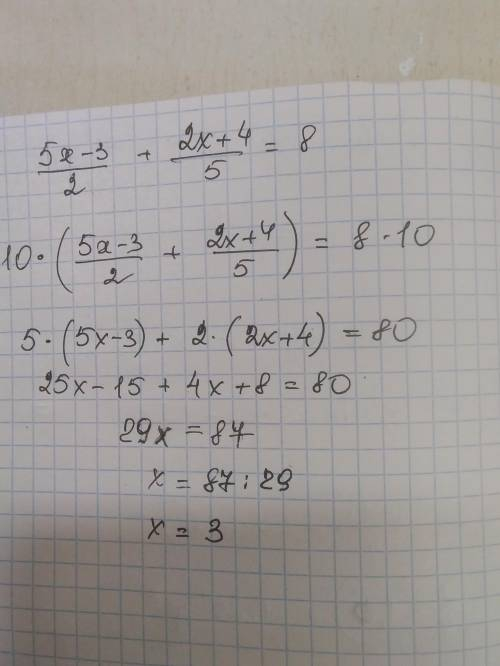 (5x-3)/2 + (2x+4)/5 = 8
10·((5x-3)/2 + (2x+4)/5) = 8·10
5·(5x-3) + 2·(2x+4) = 80
25x-15 + 4x+8 = 80
29x = 87
x = 87:29
x = 3